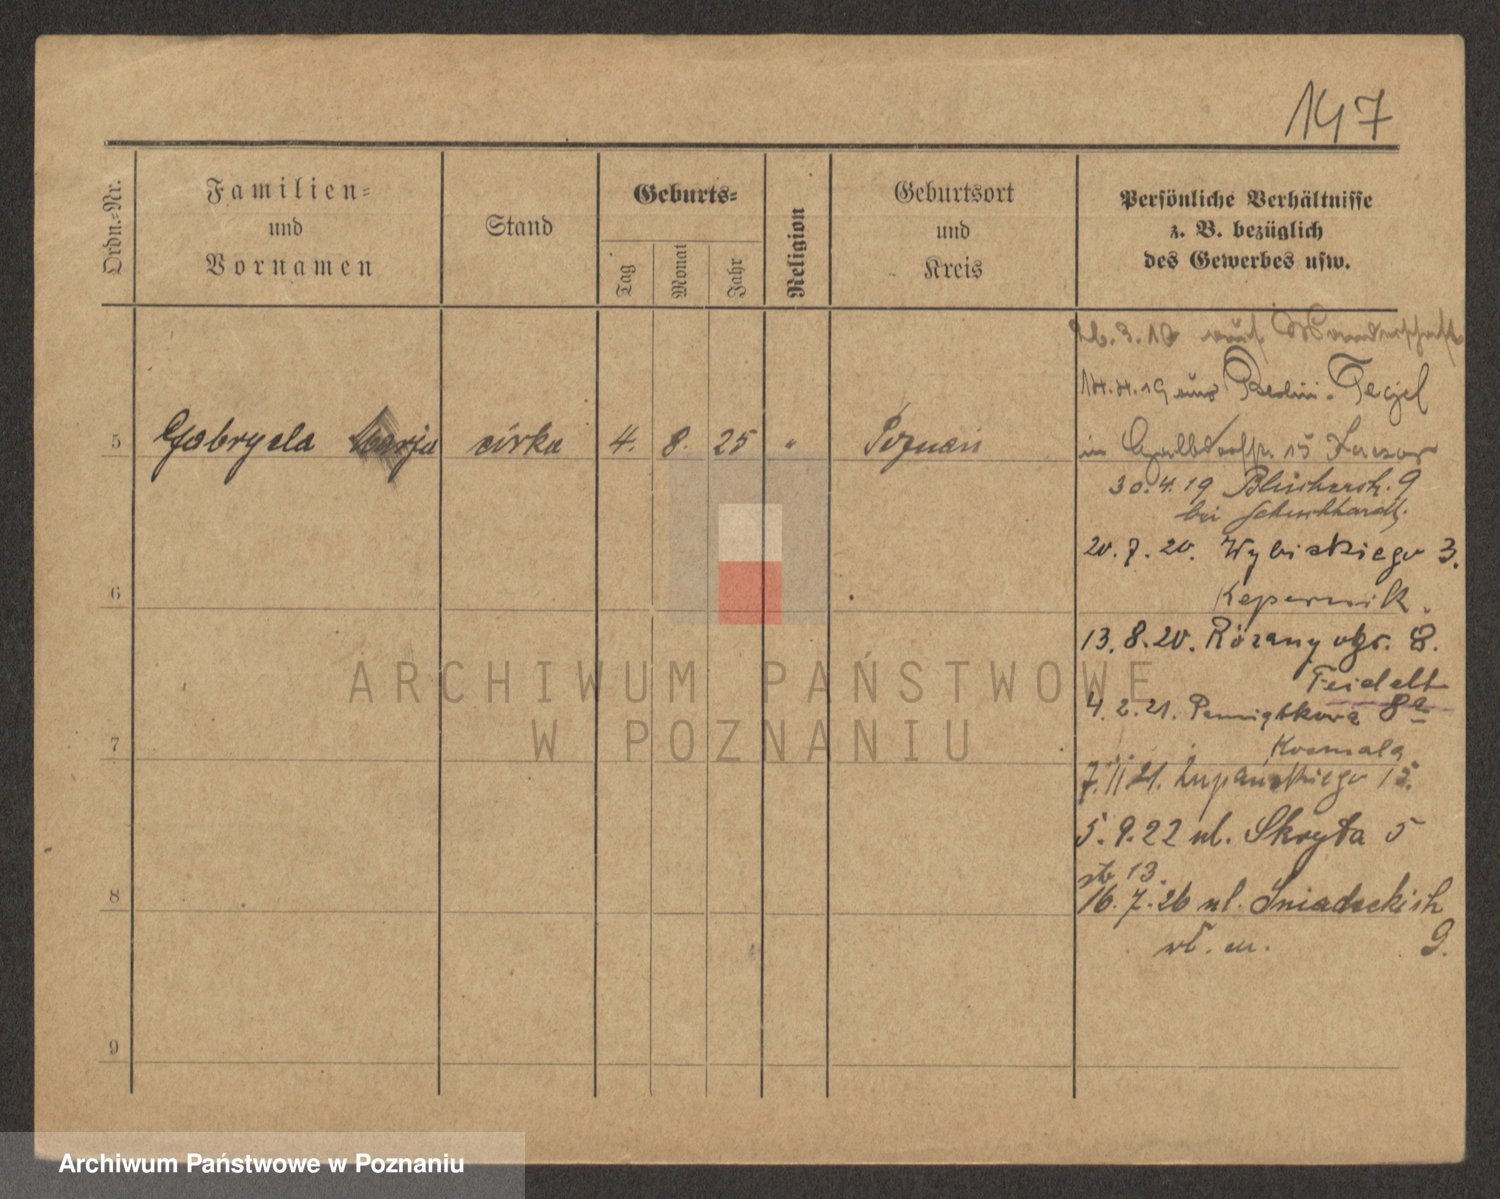 147
Ordn.-Nr.
Familien-
und
Vornamen
Stand
Geburts-
Tag
Monat
Jahr
Religion
Geburtsort
und
Kreis
Persönliche Verhältnisse
z. B. bezüglich
des Gewerbes usw.
auf Wanderschaft
14.4.19 aus Berlin-Tegel
5 Gabryela Marja córka 4. 8. 25 " Poznań
in 15
30.4.19 Blücherstr. 9
bei Schuchhardt
20.7.20. Wybickiego 3.
6
Kopernik
13.8.20. Różany 8.
Feidelt
4.2.21. Pamiątkowa 8a
7
Kosmala
7.11.21. Łupańskiego 15.
5.9.22 ul. Skryta 5
8
13.
16.7.26 ul. Śniadeckich
9.
9
ARCHIWUM PAŃSTWOWE
W POZNANIU
Archiwum Państwowe w Poznaniu